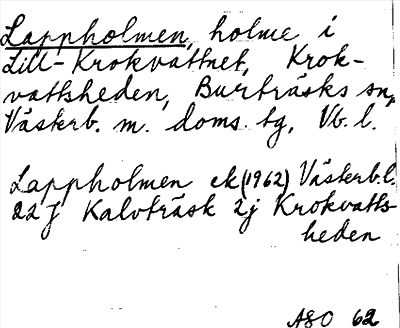 Lappholmen, holme i
Lill-Krokvattnet, Krok-
vattsheden, Burträsks sn,
Västerb. m. doms. tg, Vb. l.
Lappholmen ek (1962) Västerb.l.
22 J Kalvträsk 2j Krokvatts
heden
ASO 62